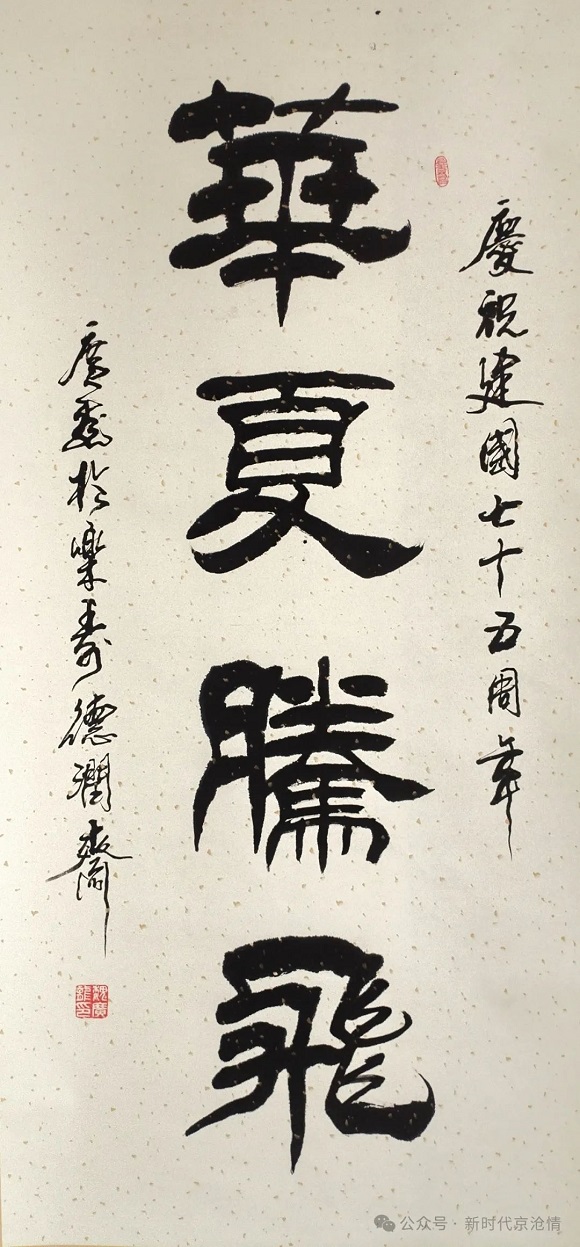 慶祝建國七十五周年
華夏騰飛
於樂壽德潤齋
公众号·新时代京沧情